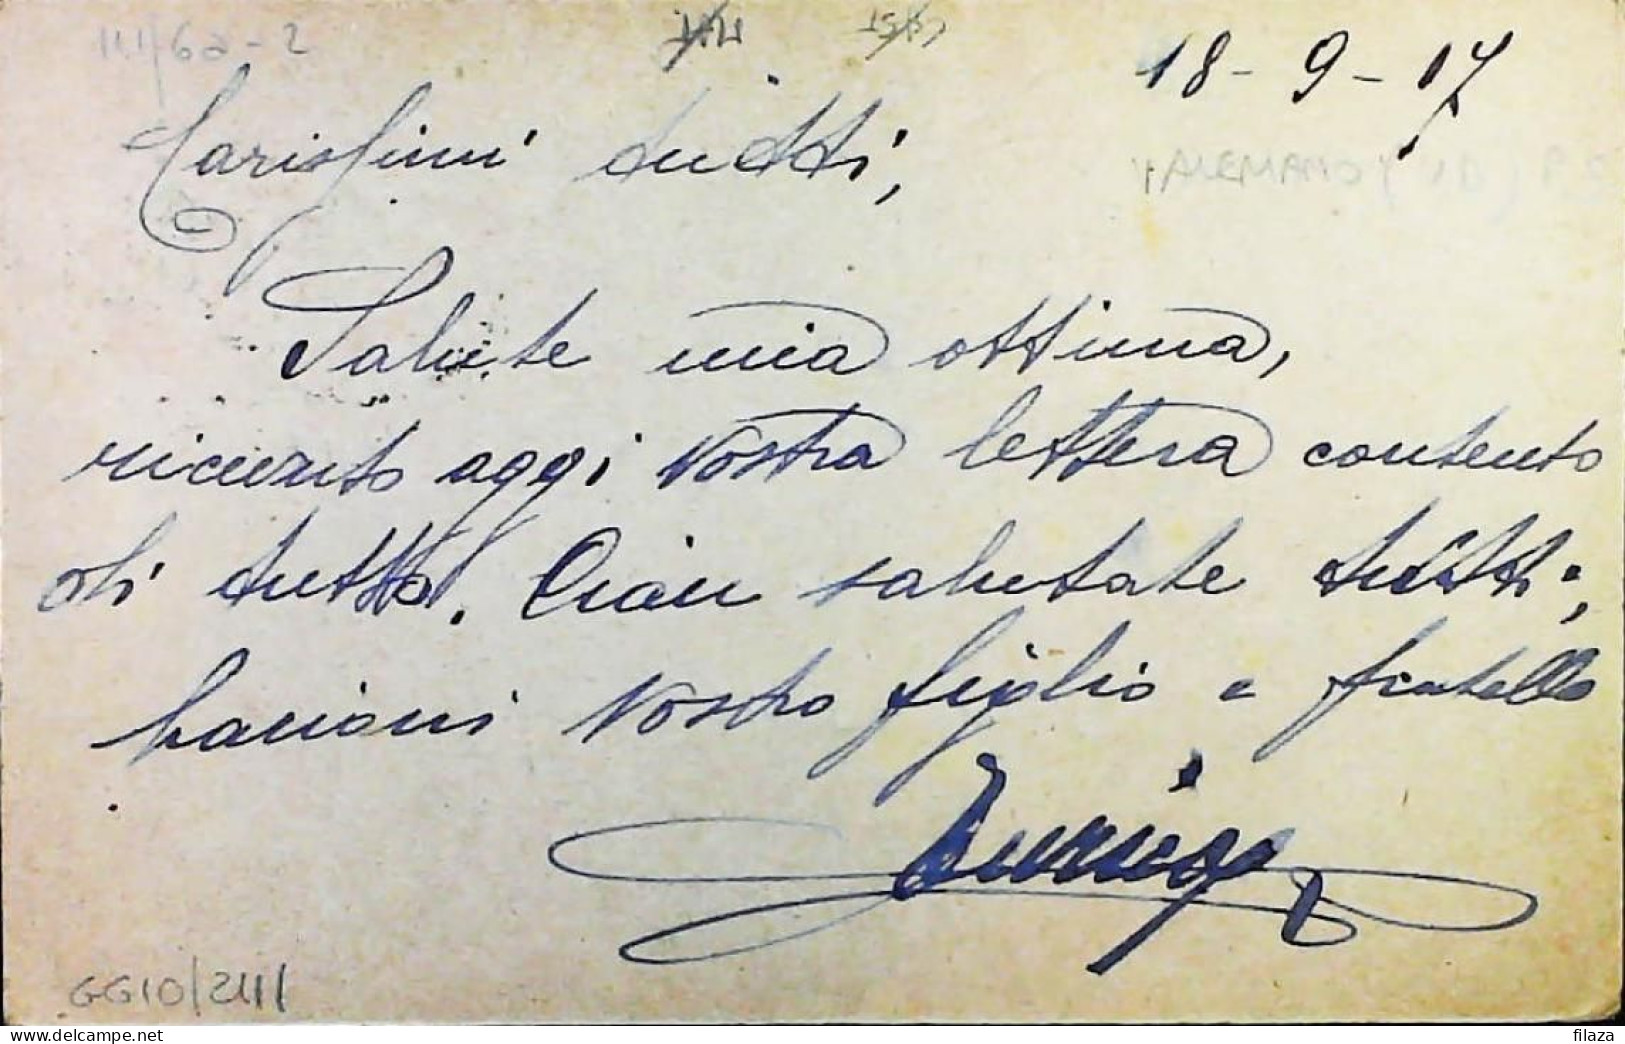 18-9-17
Carissimi tutti,
Salute mia ottima,
ricevuto aggi vostra lettera contento
di tutto. Ciau salutate tutti;
bacioni vostro figlio e fratello
GG10/2111
filaza